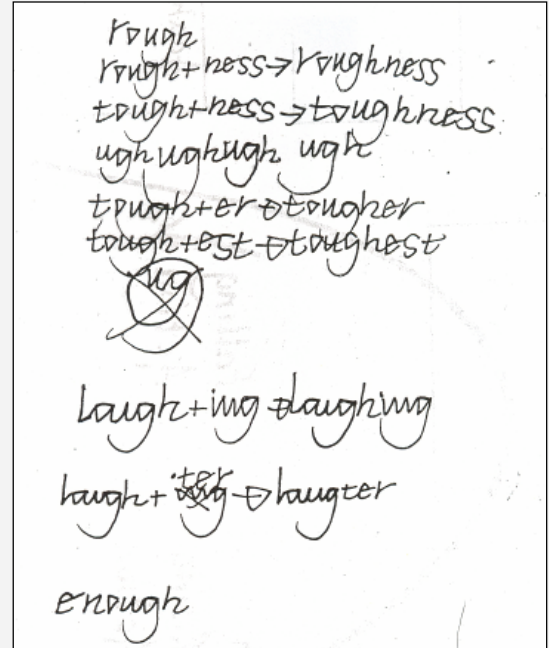 rough
rough+ness→roughness
tough+ness→toughness
ugh ugh ugh ugh
tough+er→tougher
tough+est→toughest
ug
Laugh+ing→laughing
laugh+ter→laugter
enough